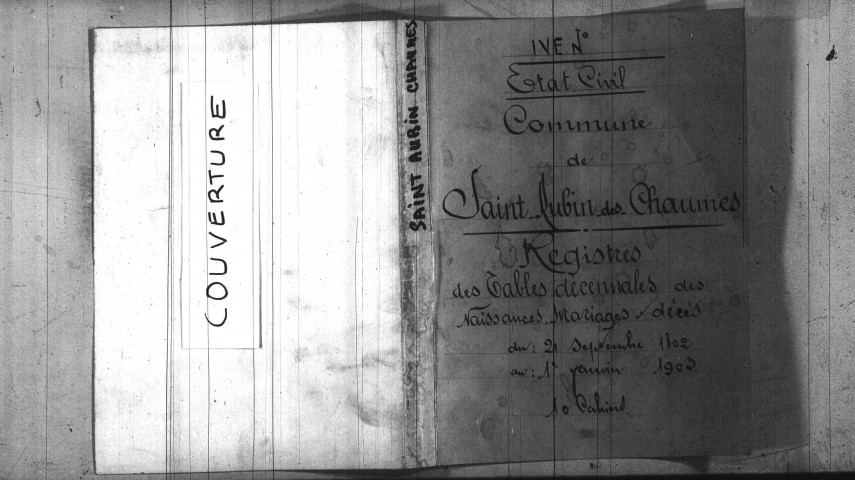 COUVERTURE
SAINT AUBIN CHAUMES
IV E N°
Etat Civil
Commune
de
Saint Aubin des Chaumes
Registres
des Tables décennales des
Naissances Mariages décès
du: 21 Septembre 1802
au: 1er janvier 1903
10 Cahiers